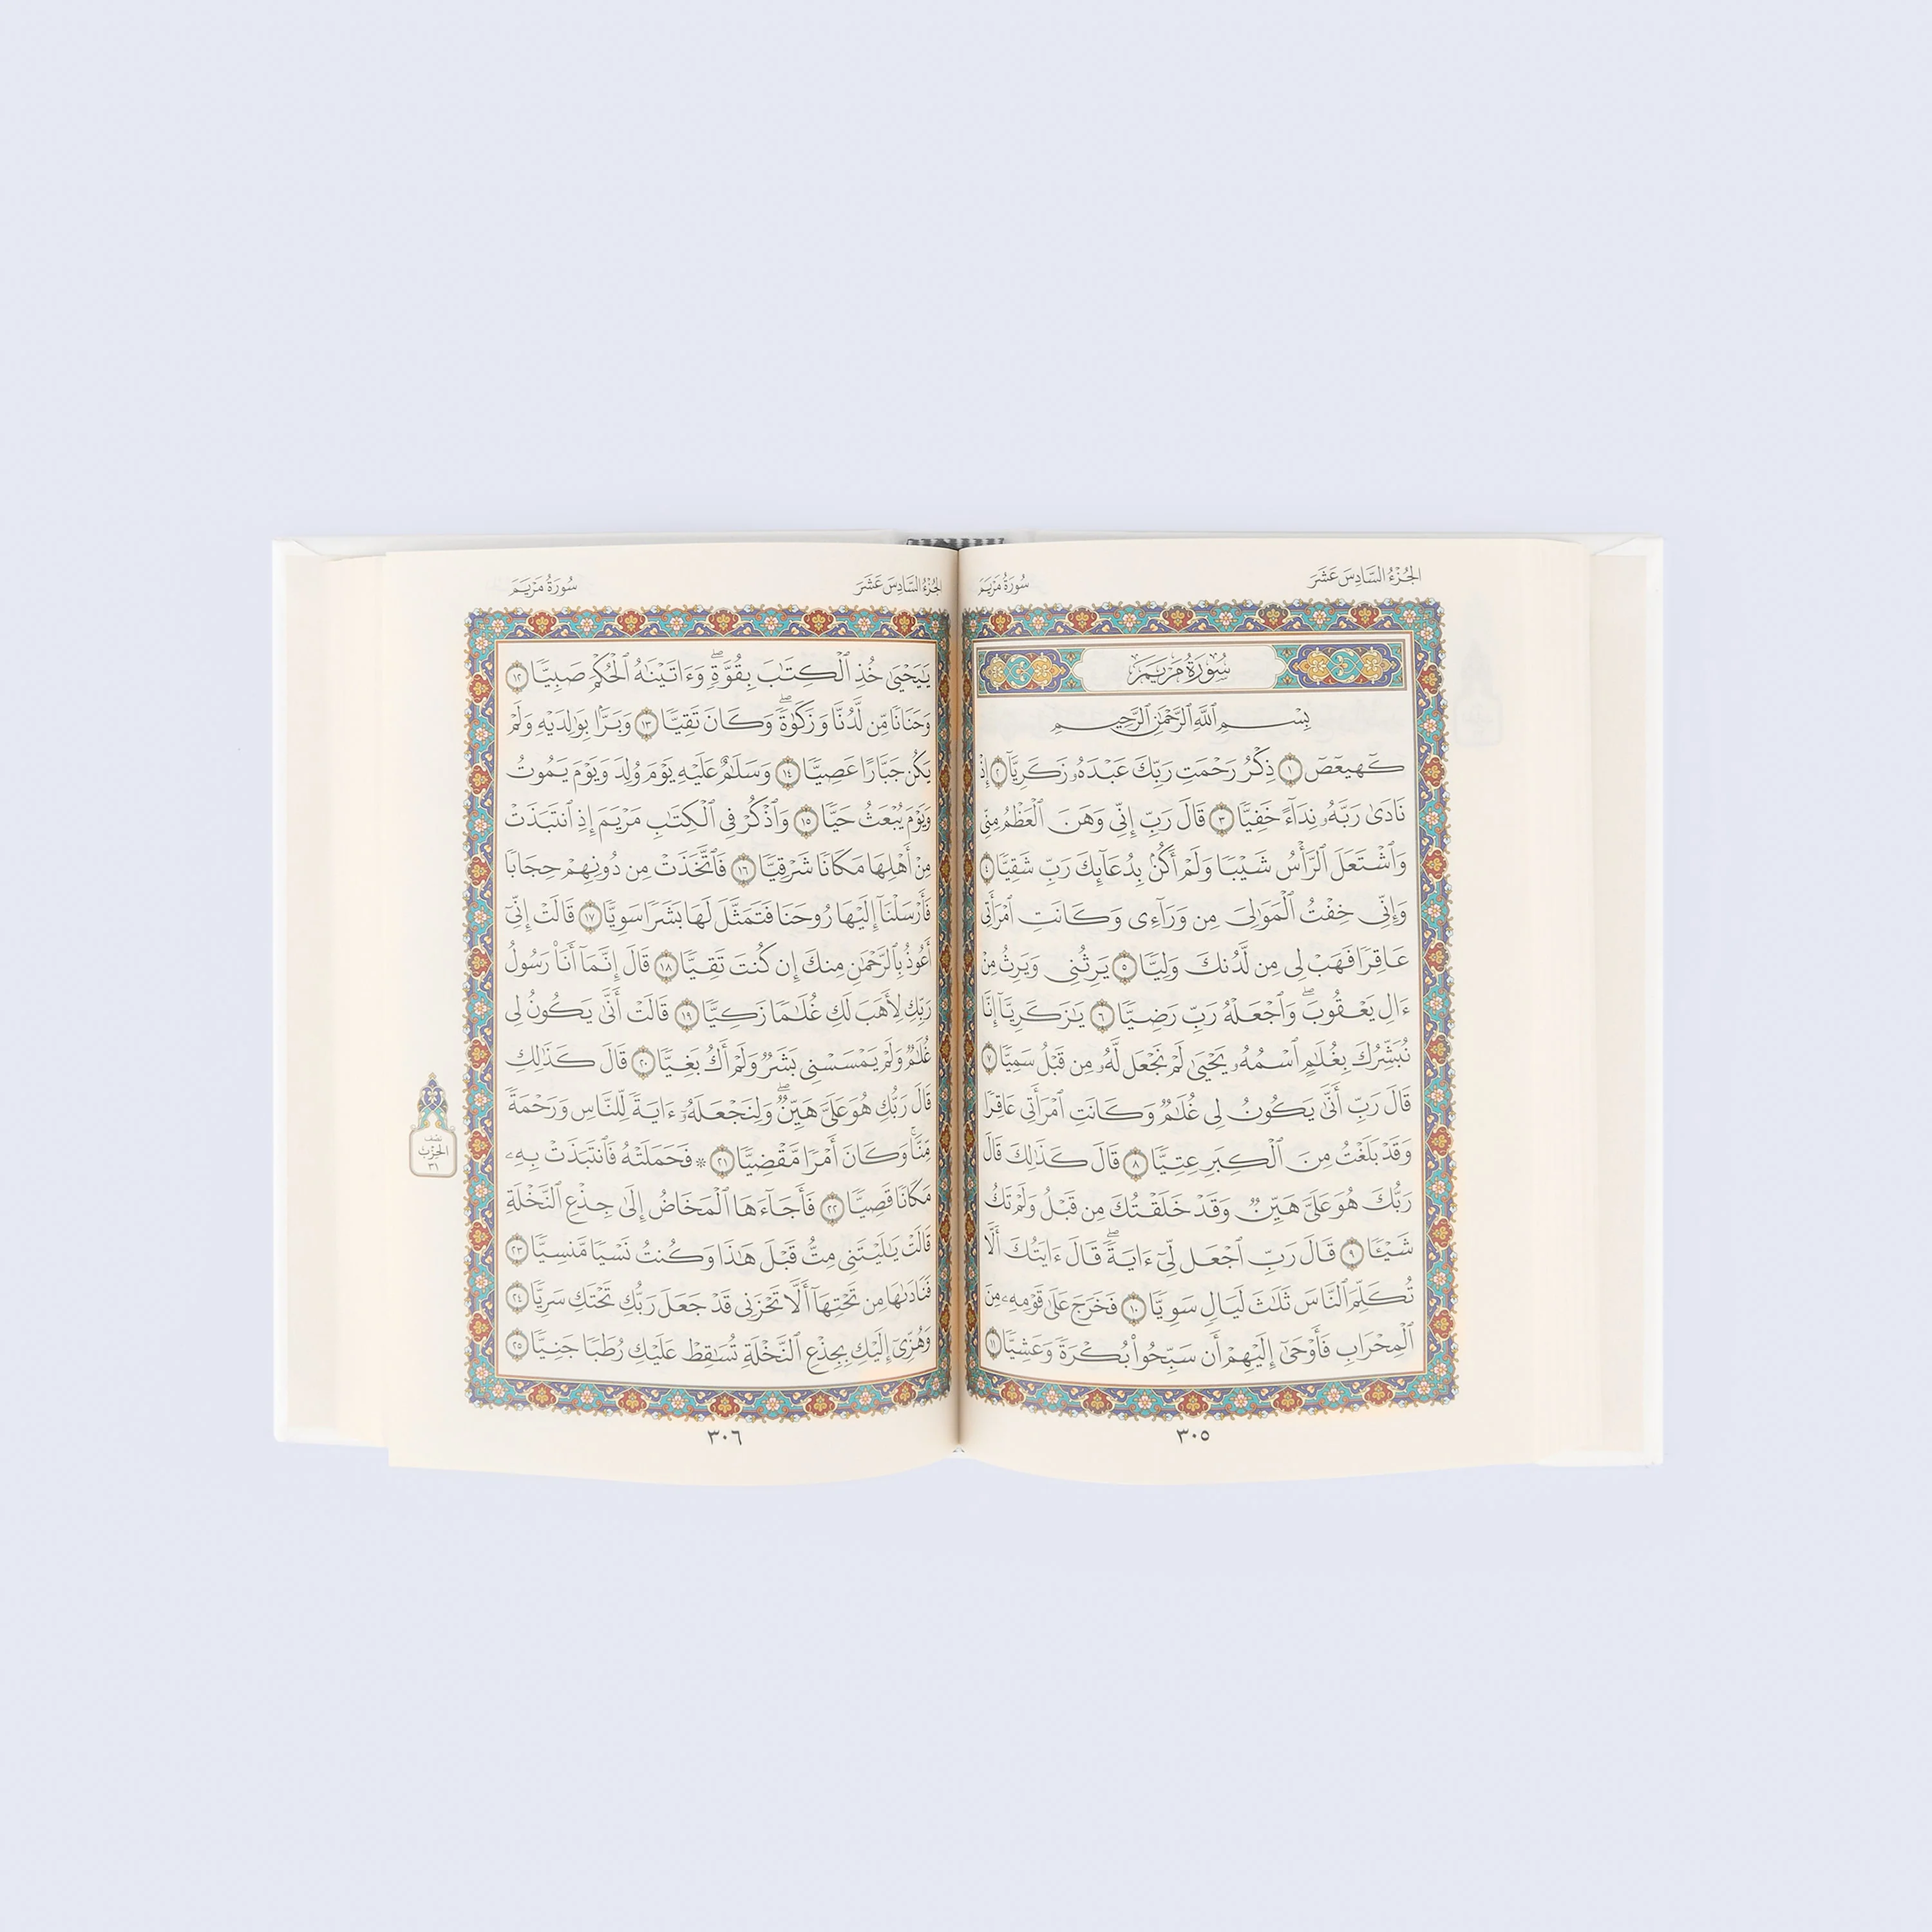 الجُزْءُ السَّادِسَ عَشَرَ
سُورَةُ مَرْيَمَ
سُورَةُ مَرْيَمَ
بِسْمِ ٱللَّهِ ٱلرَّحْمَٰنِ ٱلرَّحِيمِ
كٓهيعٓصٓ ١ ذِكْرُ رَحْمَتِ رَبِّكَ عَبْدَهُۥ زَكَرِيَّآ ٢ إِذْ
نَادَىٰ رَبَّهُۥ نِدَآءً خَفِيًّا ٣ قَالَ رَبِّ إِنِّي وَهَنَ ٱلْعَظْمُ مِنِّي
وَٱشْتَعَلَ ٱلرَّأْسُ شَيْبًا وَلَمْ أَكُنۢ بِدُعَآئِكَ رَبِّ شَقِيًّا ٤
وَإِنِّي خِفْتُ ٱلْمَوَٰلِيَ مِن وَرَآءِي وَكَانَتِ ٱمْرَأَتِي
عَاقِرًا فَهَبْ لِي مِن لَّدُنكَ وَلِيًّا ٥ يَرِثُنِي وَيَرِثُ مِنْ
ءَالِ يَعْقُوبَۖ وَٱجْعَلْهُ رَبِّ رَضِيًّا ٦ يَٰزَكَرِيَّآ إِنَّا
نُبَشِّرُكَ بِغُلَٰمٍ ٱسْمُهُۥ يَحْيَىٰ لَمْ نَجْعَل لَّهُۥ مِن قَبْلُ سَمِيًّا ٧
قَالَ رَبِّ أَنَّىٰ يَكُونُ لِي غُلَٰمٌ وَكَانَتِ ٱمْرَأَتِي عَاقِرًا
وَقَدْ بَلَغْتُ مِنَ ٱلْكِبَرِ عِتِيًّا ٨ قَالَ كَذَٰلِكَ قَالَ
رَبُّكَ هُوَ عَلَيَّ هَيِّنٌ وَقَدْ خَلَقْتُكَ مِن قَبْلُ وَلَمْ تَكُ
شَيْـًٔا ٩ قَالَ رَبِّ ٱجْعَل لِّيٓ ءَايَةًۖ قَالَ ءَايَتُكَ أَلَّا
تُكَلِّمَ ٱلنَّاسَ ثَلَٰثَ لَيَالٍ سَوِيًّا ١٠ فَخَرَجَ عَلَىٰ قَوْمِهِۦ مِنَ
ٱلْمِحْرَابِ فَأَوْحَىٰٓ إِلَيْهِمْ أَن سَبِّحُوا۟ بُكْرَةً وَعَشِيًّا ١١
٣٠٥
الجُزْءُ السَّادِسَ عَشَرَ
سُورَةُ مَرْيَمَ
يَٰيَحْيَىٰ خُذِ ٱلْكِتَٰبَ بِقُوَّةٍۖ وَءَاتَيْنَٰهُ ٱلْحُكْمَ صَبِيًّا ١٢
وَحَنَانًا مِّن لَّدُنَّا وَزَكَوٰةًۖ وَكَانَ تَقِيًّا ١٣ وَبَرًّۢا بِوَٰلِدَيْهِ وَلَمْ
يَكُن جَبَّارًا عَصِيًّا ١٤ وَسَلَٰمٌ عَلَيْهِ يَوْمَ وُلِدَ وَيَوْمَ يَمُوتُ
وَيَوْمَ يُبْعَثُ حَيًّا ١٥ وَٱذْكُرْ فِي ٱلْكِتَٰبِ مَرْيَمَ إِذِ ٱنتَبَذَتْ
مِنْ أَهْلِهَا مَكَانًا شَرْقِيًّا ١٦ فَٱتَّخَذَتْ مِن دُونِهِمْ حِجَابًا
فَأَرْسَلْنَآ إِلَيْهَا رُوحَنَا فَتَمَثَّلَ لَهَا بَشَرًا سَوِيًّا ١٧ قَالَتْ إِنِّيٓ
أَعُوذُ بِٱلرَّحْمَٰنِ مِنكَ إِن كُنتَ تَقِيًّا ١٨ قَالَ إِنَّمَآ أَنَا۠ رَسُولُ
رَبِّكِ لِأَهَبَ لَكِ غُلَٰمًا زَكِيًّا ١٩ قَالَتْ أَنَّىٰ يَكُونُ لِي
غُلَٰمٌ وَلَمْ يَمْسَسْنِي بَشَرٌ وَلَمْ أَكُ بَغِيًّا ٢٠ قَالَ كَذَٰلِكِ
قَالَ رَبُّكِ هُوَ عَلَيَّ هَيِّنٌۖ وَلِنَجْعَلَهُۥٓ ءَايَةً لِّلنَّاسِ وَرَحْمَةً
مِّنَّاۚ وَكَانَ أَمْرًا مَّقْضِيًّا ٢١ ۞ فَحَمَلَتْهُ فَٱنتَبَذَتْ بِهِۦ
مَكَانًا قَصِيًّا ٢٢ فَأَجَآءَهَا ٱلْمَخَاضُ إِلَىٰ جِذْعِ ٱلنَّخْلَةِ
قَالَتْ يَٰلَيْتَنِي مِتُّ قَبْلَ هَٰذَا وَكُنتُ نَسْيًا مَّنسِيًّا ٢٣
فَنَادَىٰهَا مِن تَحْتِهَآ أَلَّا تَحْزَنِي قَدْ جَعَلَ رَبُّكِ تَحْتَكِ سَرِيًّا ٢٤
وَهُزِّيٓ إِلَيْكِ بِجِذْعِ ٱلنَّخْلَةِ تُسَٰقِطْ عَلَيْكِ رُطَبًا جَنِيًّا ٢٥
نصف
الحِزْب
٣١
٣٠٦